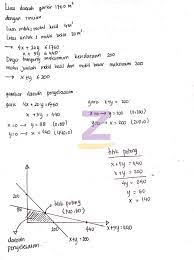 Luas daerah parkir 1760 m²
dengan rincian
Luas mobil mobil kecil 4m²
Luas untuk 1 mobil besar 20 m²
→ 4x + 20y ≤ 1760
x + 5y ≤ 440
Daya tampung maksimum kendaraan 200
maka jumlah mobil kecil dan mobil besar maksimum 200
→ x + y ≤ 200
gambar daerah penyelesaian
garis 4x + 20y = 1760
x + 5y = 440
x = 0 → y = 88 (0,88)
y = 0 → x = 440 (440,0)
garis x + y = 200
x = 0 → y = 200 (0,200)
y = 0 → x = 200 (200,0)
Z
titik potong
x + 5y = 440
x + y = 200
4y = 240
y = 60
x = 140
200
88
titik potong
(140,60)
200
440
x + 5y = 440
x + y = 200
daerah
penyelesaian